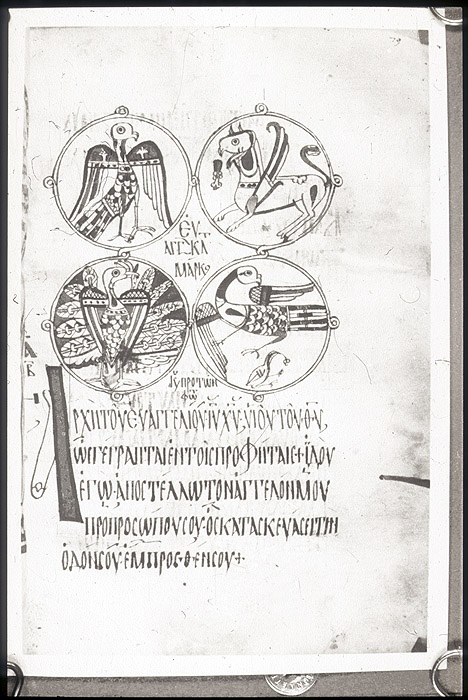 ΕΥ.
ΑΓΓ ΚΑ
ΜΑΡΚΟ
ΡΧῊ ΤΟΥ ΕΥΑΓΓΕΛΙΟΥ ΙΥ ΧΥ ΥΙΟΥ ΤΟΥ ΘΥ,
ὩϹ ΓΕΓΡΑΠΤΑΙ ΕΝ ΤΟΙϹ ΠΡΟΦΗΤΑΙϹ+ ΙΔΟΥ
ΕΓΩ ΑΠΟϹΤΕΛΛΩ ΤΟΝ ΑΓΓΕΛΟΝ ΜΟΥ
ΠΡΟ ΠΡΟϹΩΠΟΥ ϹΟΥ· ὉϹ ΚΑΤΑϹΚΕΥΑϹΕΙ ΤΗΝ
ὉΔΟΝ ϹΟΥ· ΕΜΠΡΟϹΘΕΝ ϹΟΥ+